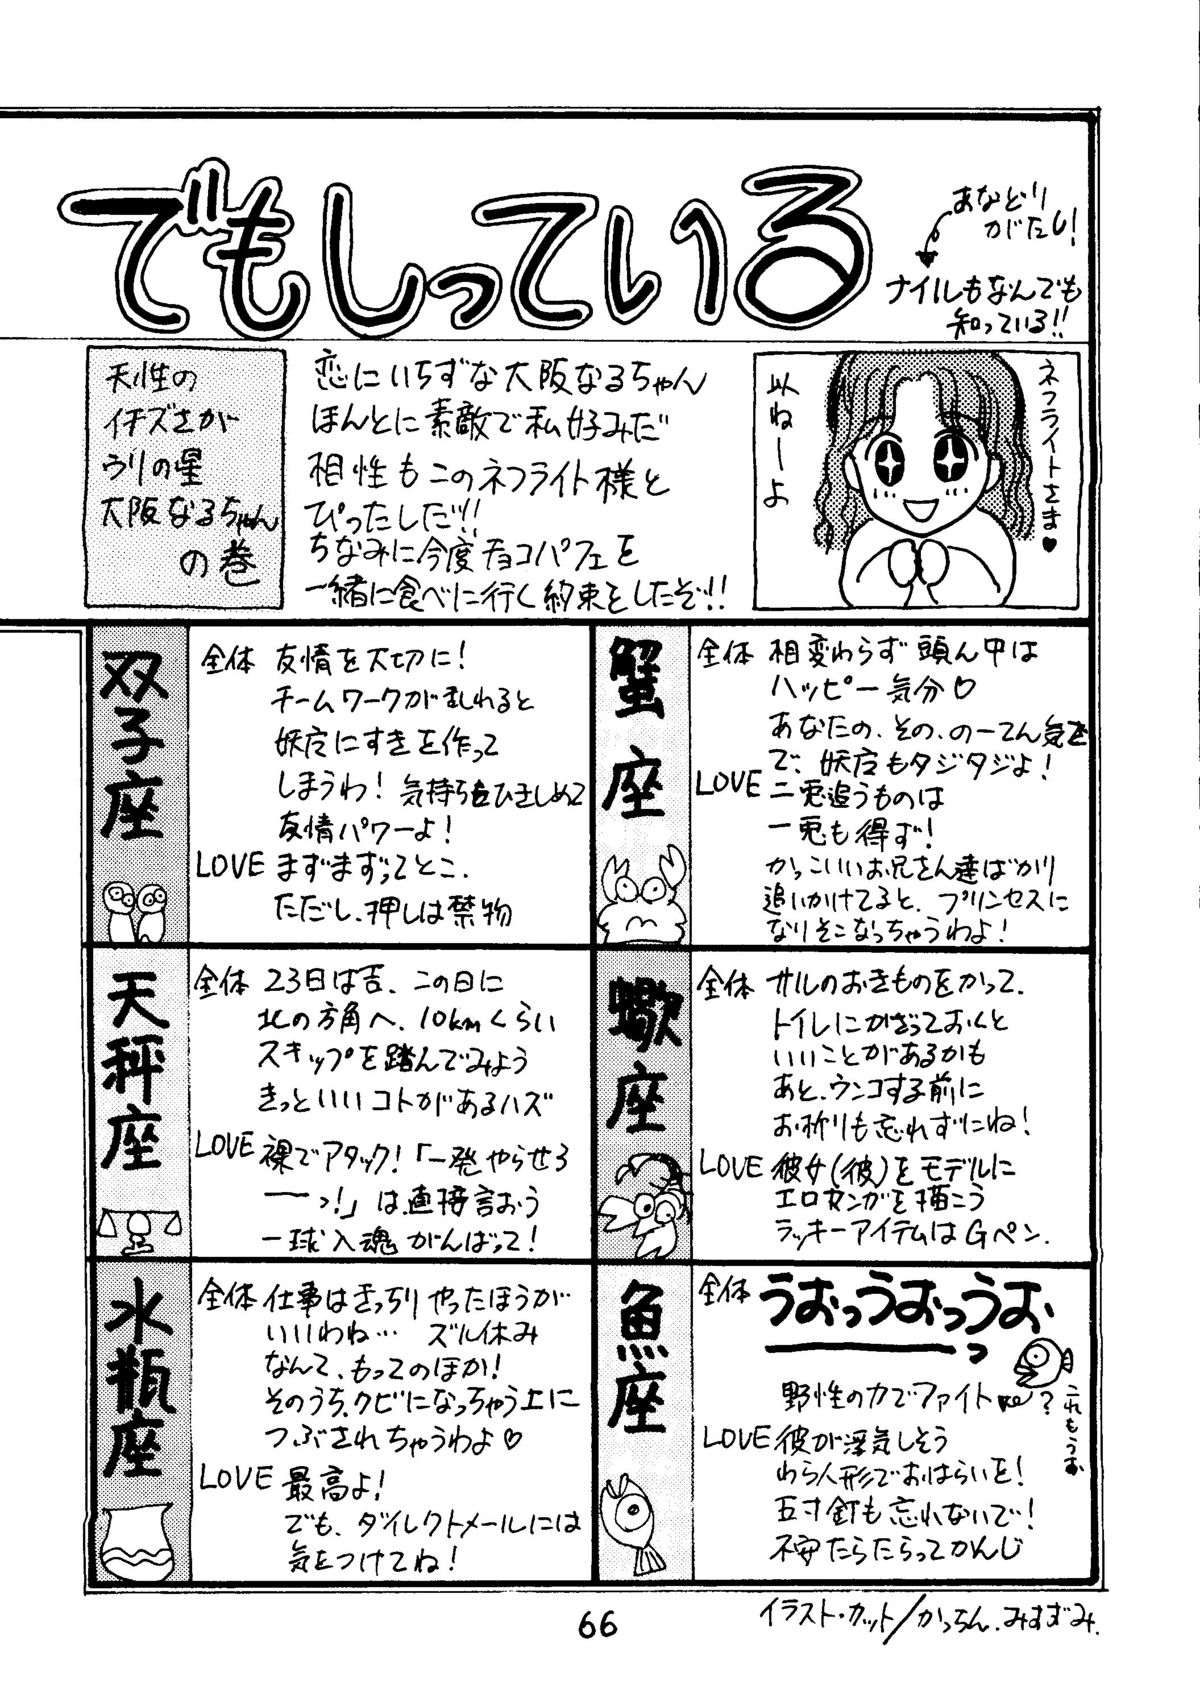 でもしっている
あなどり
がたし!
ナイルもなんでも
知っている!!
天性の
イチズさが
ウリの星
大阪なるちゃん
の巻
恋にいちずな大阪なるちゃん
ほんとに素敵で私好みだ
相性もこのネフライト様と
ぴったしだ!!
ちなみに今度チョコパフェを
一緒に食べに行く約束をしたぞ!!
ネフライトさま♥
以ねーよ
双子座
全体 友情を大切に!
チームワークが乱れると
妖魔にすきを作って
しまうわ! 気持ちをひきしめて
友情パワーよ!
LOVE まずまずってとこ.
ただし、押しは禁物
蟹座
全体 相変わらず頭ん中は
ハッピー気分♡
あなたの、その、のーてん気さ
で、妖魔もタジタジよ!
LOVE 二兎追うものは
一兎も得ず!
かっこいいお兄さん達ばかり
追いかけてると、プリンセスに
なりそこなっちゃうわよ!
天秤座
全体 23日は吉、この日に
北の方角へ、10kmくらい
スキップを踏んでみよう
きっといいコトがあるハズ
LOVE 裸でアタック!「一発やらせろ
ーっ!」は直接言おう
一球入魂がんばって!
蠍座
全体 サルのおきものをかって、
トイレにかざっておくと
いいことがあるかも
あと、ウンコする前に
お祈りも忘れずにね!
LOVE 彼女(彼)をモデルに
エロマンガを描こう
ラッキーアイテムはGペン.
水瓶座
全体 仕事はきっちりやったほうが
いいわね… ズル休み
なんて、もってのほか!
そのうち、クビになっちゃう上に
つぶされちゃうわよ♡
LOVE 最高よ!
でも、ダイレクトメールには
気をつけてね!
魚座
全体 うおっうおっうおっ
野性の力でファイト
?
これもうお
LOVE 彼が浮気しそう
わら人形でおはらいを!
五寸釘も忘れないで!
不安たらたらってかんじ
66
イラスト・カット/かっちん.みすずみ.